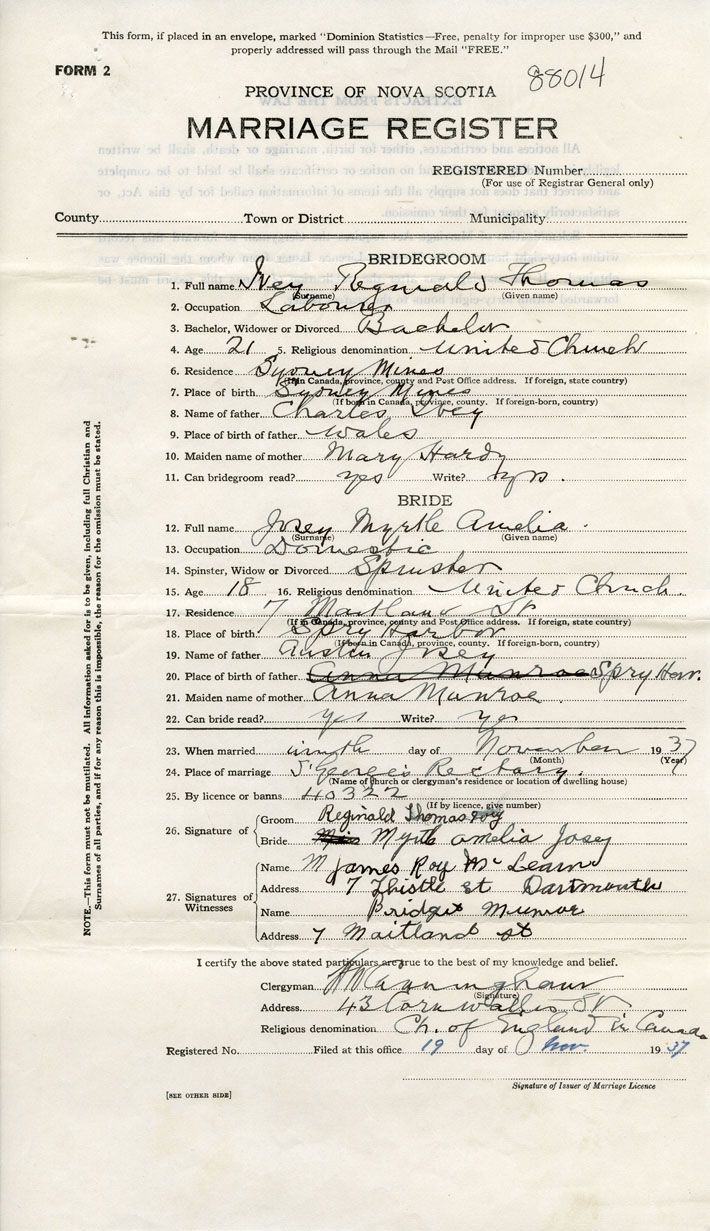 This form, if placed in an envelope, marked "Dominion Statistics—Free, penalty for improper use $300," and
properly addressed will pass through the Mail "FREE."
FORM 2
88014
PROVINCE OF NOVA SCOTIA
MARRIAGE REGISTER
REGISTERED Number
(For use of Registrar General only)
County Town or District Municipality
BRIDEGROOM
1. Full name Ivey Reginald Thomas
(Surname) (Given name)
2. Occupation Labourer
3. Bachelor, Widower or Divorced Bachelor
4. Age 21 5. Religious denomination United Church
6. Residence Sydney Mines
(If in Canada, province, county and Post Office address. If foreign, state country)
7. Place of birth Sydney Mines
(If born in Canada, province, county. If foreign-born, country)
8. Name of father Charles Ivey
9. Place of birth of father Wales
10. Maiden name of mother Mary Hardy
11. Can bridegroom read? yes Write? yes.
BRIDE
12. Full name Josey Myrtle Amelia.
(Surname) (Given name)
13. Occupation Domestic
14. Spinster, Widow or Divorced Spinster
15. Age 18 16. Religious denomination United Church.
17. Residence 7 Maitland St
(If in Canada, province, county and Post Office address. If foreign, state country)
18. Place of birth Spry Harbor
(If born in Canada, province, county. If foreign-born, country)
19. Name of father Austin Josey
20. Place of birth of father Anna Munroe Spry Har.
21. Maiden name of mother Anna Munroe
22. Can bride read? Yes Write? Yes
23. When married ninth day of November 1937
(Month) (Year)
24. Place of marriage St George's Rectory.
(Name of church or clergyman's residence or location of dwelling house)
25. By licence or banns 40322
(If by licence, give number)
26. Signature of
Groom Reginald Thomas Ivey
Bride Myrtle Amelia Josey
27. Signatures of Witnesses
Name M James Roy McLearn
Address 7 Thistle st Dartmouth
Name Bridget Munroe
Address 7 Maitland st
I certify the above stated particulars are true to the best of my knowledge and belief.
Clergyman
(Signature)
Address 43 Cornwallis St
Religious denomination Ch. of England in Canada
Registered No. Filed at this office 19 day of Nov. 1937
Signature of Issuer of Marriage Licence
[SEE OTHER SIDE]
NOTE.—This form must not be mutilated. All information asked for is to be given, including full Christian and
Surnames of all parties, and if for any reason this is impossible, the reason for the omission must be stated.